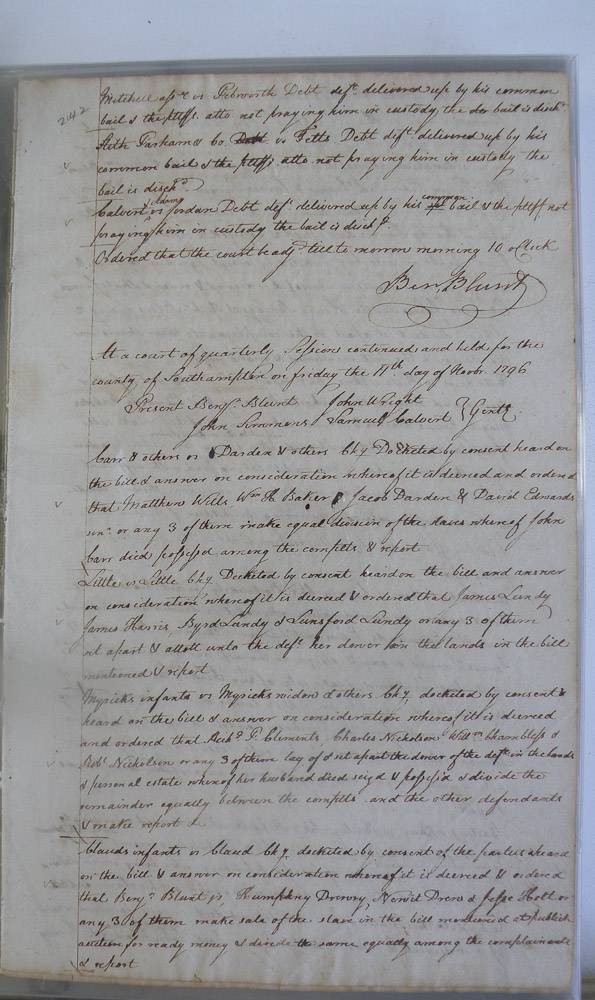 242
Mitchell assee vs Pebworth Debt deft. delivered up by his common
bail & the pltffs. atto not praying him in custody the do bail is dischd.
Aeth Parham & Co. Debt vs Felts Debt deft. delivered up by his
common bail & the pltffs. atto not praying him in custody the
bail is dischd.
Calvert vs Jordan Debt deft. delivered up by his common bail & the pltff not
praying him in custody the bail is dischd.
Ordered that the court be adjd. till to morrow morning 10 oClock
Benj. Blunt
At a court of quarterly Session continued and held for the
county of Southampton on friday the 11th. day of Novbr. 1796
Present Benjn. Blunt John Wright
John Simmons Samuel Calvert } Gentn.
Carr & others vs Darden & others Chy. Docketed by consent heard on
the bill & answer on consideration whereof it is decreed and ordered
that Matthew Wills, Wm. H Baker, Jacob Darden & David Edwards
senr. or any 3 of them make equal division of the slaves whereof John
Carr died possessd among the complts & report
Little vs Little Chy. Docketed by consent heard on the bill and answer
on consideration whereof it is decreed & ordered that James Lundy
James Harris, Byrd Lundy & Lunsford Lundy or any 3 of them
set apart & allott unto the deft. her dower in the lands in the bill
mentioned & report
Myricks infants vs Myricks widow & others Chy. docketed by consent &
heard on the bill & answer on consideration whereof it is decreed
and ordered that Richd. F. Clements, Charles Nicholson Willm. Chambless &
Robt. Nicholson or any 3 of them lay of & set apart the dower of the deft. in the lands
& personal estate whereof her husband died seizd & possessd & divide the
remainder equally between the complts and the other defendants
& make report &
Clauds infants vs Claud Chy. docketed by consent of the parties & heard
on the bill & answer on consideration whereof it is decreed & ordered
that Benjn. Blunt jr, Humphrey Drewry, Newit Drew & Jesse Holt or
any 3 of them make sale of the slave in the bill mentioned at publick
auction for ready money & divide the same equally among the complainants
& report